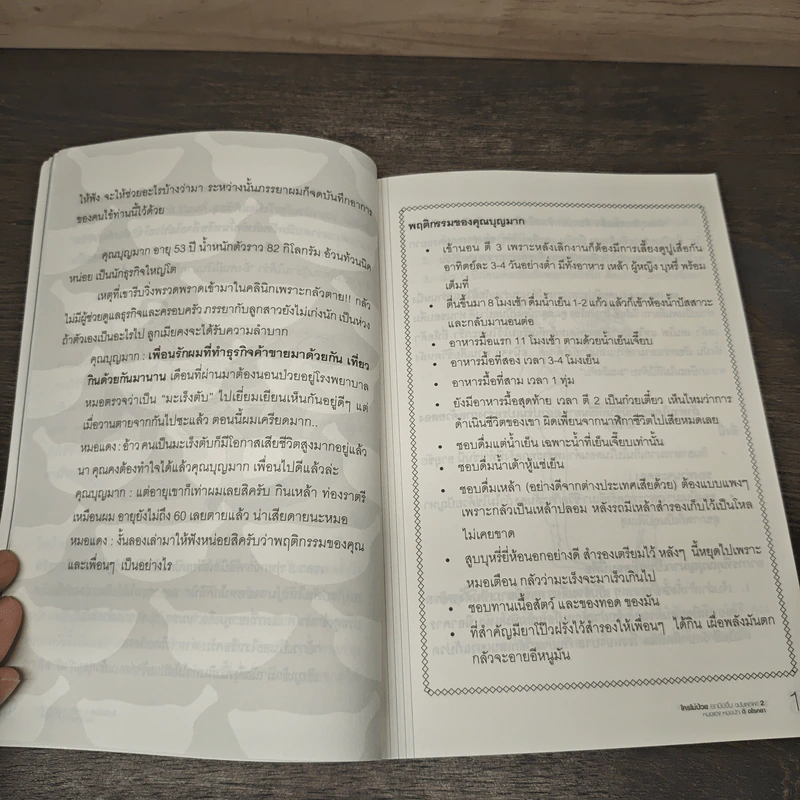 ให้ฟัง จะให้ช่วยอะไรบ้างว่ามา ระหว่างนั้นภรรยาผมก็จดบันทึกอาการ
ของคนไข้ท่านนี้ไว้ด้วย
คุณบุญมาก อายุ 53 ปี น้ำหนักตัวราว 82 กิโลกรัม อ้วนท้วนนิด
หน่อย เป็นนักธุรกิจใหญ่โต
เหตุที่เขารีบวิ่งพรวดพราดเข้ามาในคลินิกเพราะกลัวตาย!! กลัว
ไม่มีผู้ช่วยดูแลธุรกิจและครอบครัว ภรรยากับลูกสาวยังไม่เก่งนัก เป็นห่วง
ถ้าตัวเองเป็นอะไรไป ลูกเมียคงจะได้รับความลำบาก
คุณบุญมาก : เพื่อนรักผมที่ทำธุรกิจค้าขายมาด้วยกัน เที่ยว
กินด้วยกันมานาน เดือนที่ผ่านมาต้องนอนป่วยอยู่โรงพยาบาล
หมอตรวจว่าเป็น “มะเร็งตับ” ไปเยี่ยมเยียนเห็นกันอยู่ดีๆ แต่
เมื่อวานตายจากกันไปซะแล้ว ตอนนี้ผมเครียดมาก..
หมอแดง : อ้าว คนเป็นมะเร็งตับก็มีโอกาสเสียชีวิตสูงมากอยู่แล้ว
นา คุณคงต้องทำใจได้แล้วคุณบุญมาก เพื่อนไปดีแล้วล่ะ
คุณบุญมาก : แต่อายุเขาก็เท่าผมเลยสิครับ กินเหล้า ท่องราตรี
เหมือนผม อายุยังไม่ถึง 60 เลยตายแล้ว น่าเสียดายนะหมอ
หมอแดง : งั้นลองเล่ามาให้ฟังหน่อยสิครับว่าพฤติกรรมของคุณ
และเพื่อนๆ เป็นอย่างไร
พฤติกรรมของคุณบุญมาก
• เข้านอน ตี 3 เพราะหลังเลิกงานก็ต้องมีการเลี้ยงดูปูเสื่อกัน
อาทิตย์ละ 3-4 วันอย่างต่ำ มีทั้งอาหาร เหล้า ผู้หญิง บุหรี่ พร้อม
เต็มที่
• ตื่นขึ้นมา 8 โมงเช้า ดื่มน้ำเย็น 1-2 แก้ว แล้วก็เข้าห้องน้ำปัสสาวะ
และกลับมานอนต่อ
• อาหารมื้อแรก 11 โมงเช้า ตามด้วยน้ำเย็นเจี๊ยบ
• อาหารมื้อที่สอง เวลา 3-4 โมงเย็น
• อาหารมื้อที่สาม เวลา 1 ทุ่ม
• ยังมีอาหารมื้อสุดท้าย เวลา ตี 2 เป็นก๋วยเตี๋ยว เห็นไหมว่าการ
ดำเนินชีวิตของเขา ผิดเพี้ยนจากนาฬิกาชีวิตไปเสียหมดเลย
• ชอบดื่มแต่น้ำเย็น เฉพาะน้ำที่เย็นเจี๊ยบเท่านั้น
• ชอบดื่มน้ำเต้าหู้แช่เย็น
• ชอบดื่มเหล้า (อย่างดีจากต่างประเทศเสียด้วย) ต้องแบบแพงๆ
เพราะกลัวเป็นเหล้าปลอม หลังรถมีเหล้าสำรองเก็บไว้เป็นโหล
ไม่เคยขาด
• สูบบุหรี่ยี่ห้อนอกอย่างดี สำรองเตรียมไว้ หลังๆ นี้หยุดไปเพราะ
หมอเตือน กลัวว่ามะเร็งจะมาเร็วเกินไป
• ชอบทานเนื้อสัตว์ และของทอด ของมัน
• ที่สำคัญมียาโป๊วฝรั่งไว้สำรองให้เพื่อนๆ ได้กิน เผื่อพลังมันตก
กลัวจะอายอีหนูมัน
ใครไม่ป่วย 2
1